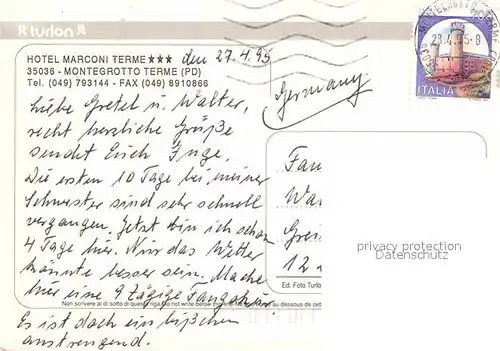 turlon
HOTEL MARCONI TERME ★★★
35036 - MONTEGROTTO TERME (PD)
Tel. (049) 793144 - FAX (049) 8910866
den 27.4.95
Germany
ITALIA
Liebe Gretel u. Walter,
recht herzliche Grüße
sendet Euch Inge.
Die ersten 10 Tage bei meiner
Schwester sind sehr schnell
vergangen. Jetzt bin ich schon
4 Tage hier. Nur das Wetter
könnte besser sein. Mache
hier eine 9 tägige Fangokur.
Es ist doch ein bißchen
anstrengend.
Non scrivere al di sotto di questa riga Do not write below this
au dessous de cet
Fan
Wa
Gre
12
privacy protection
Datenschutz
Ed. Foto Turlo